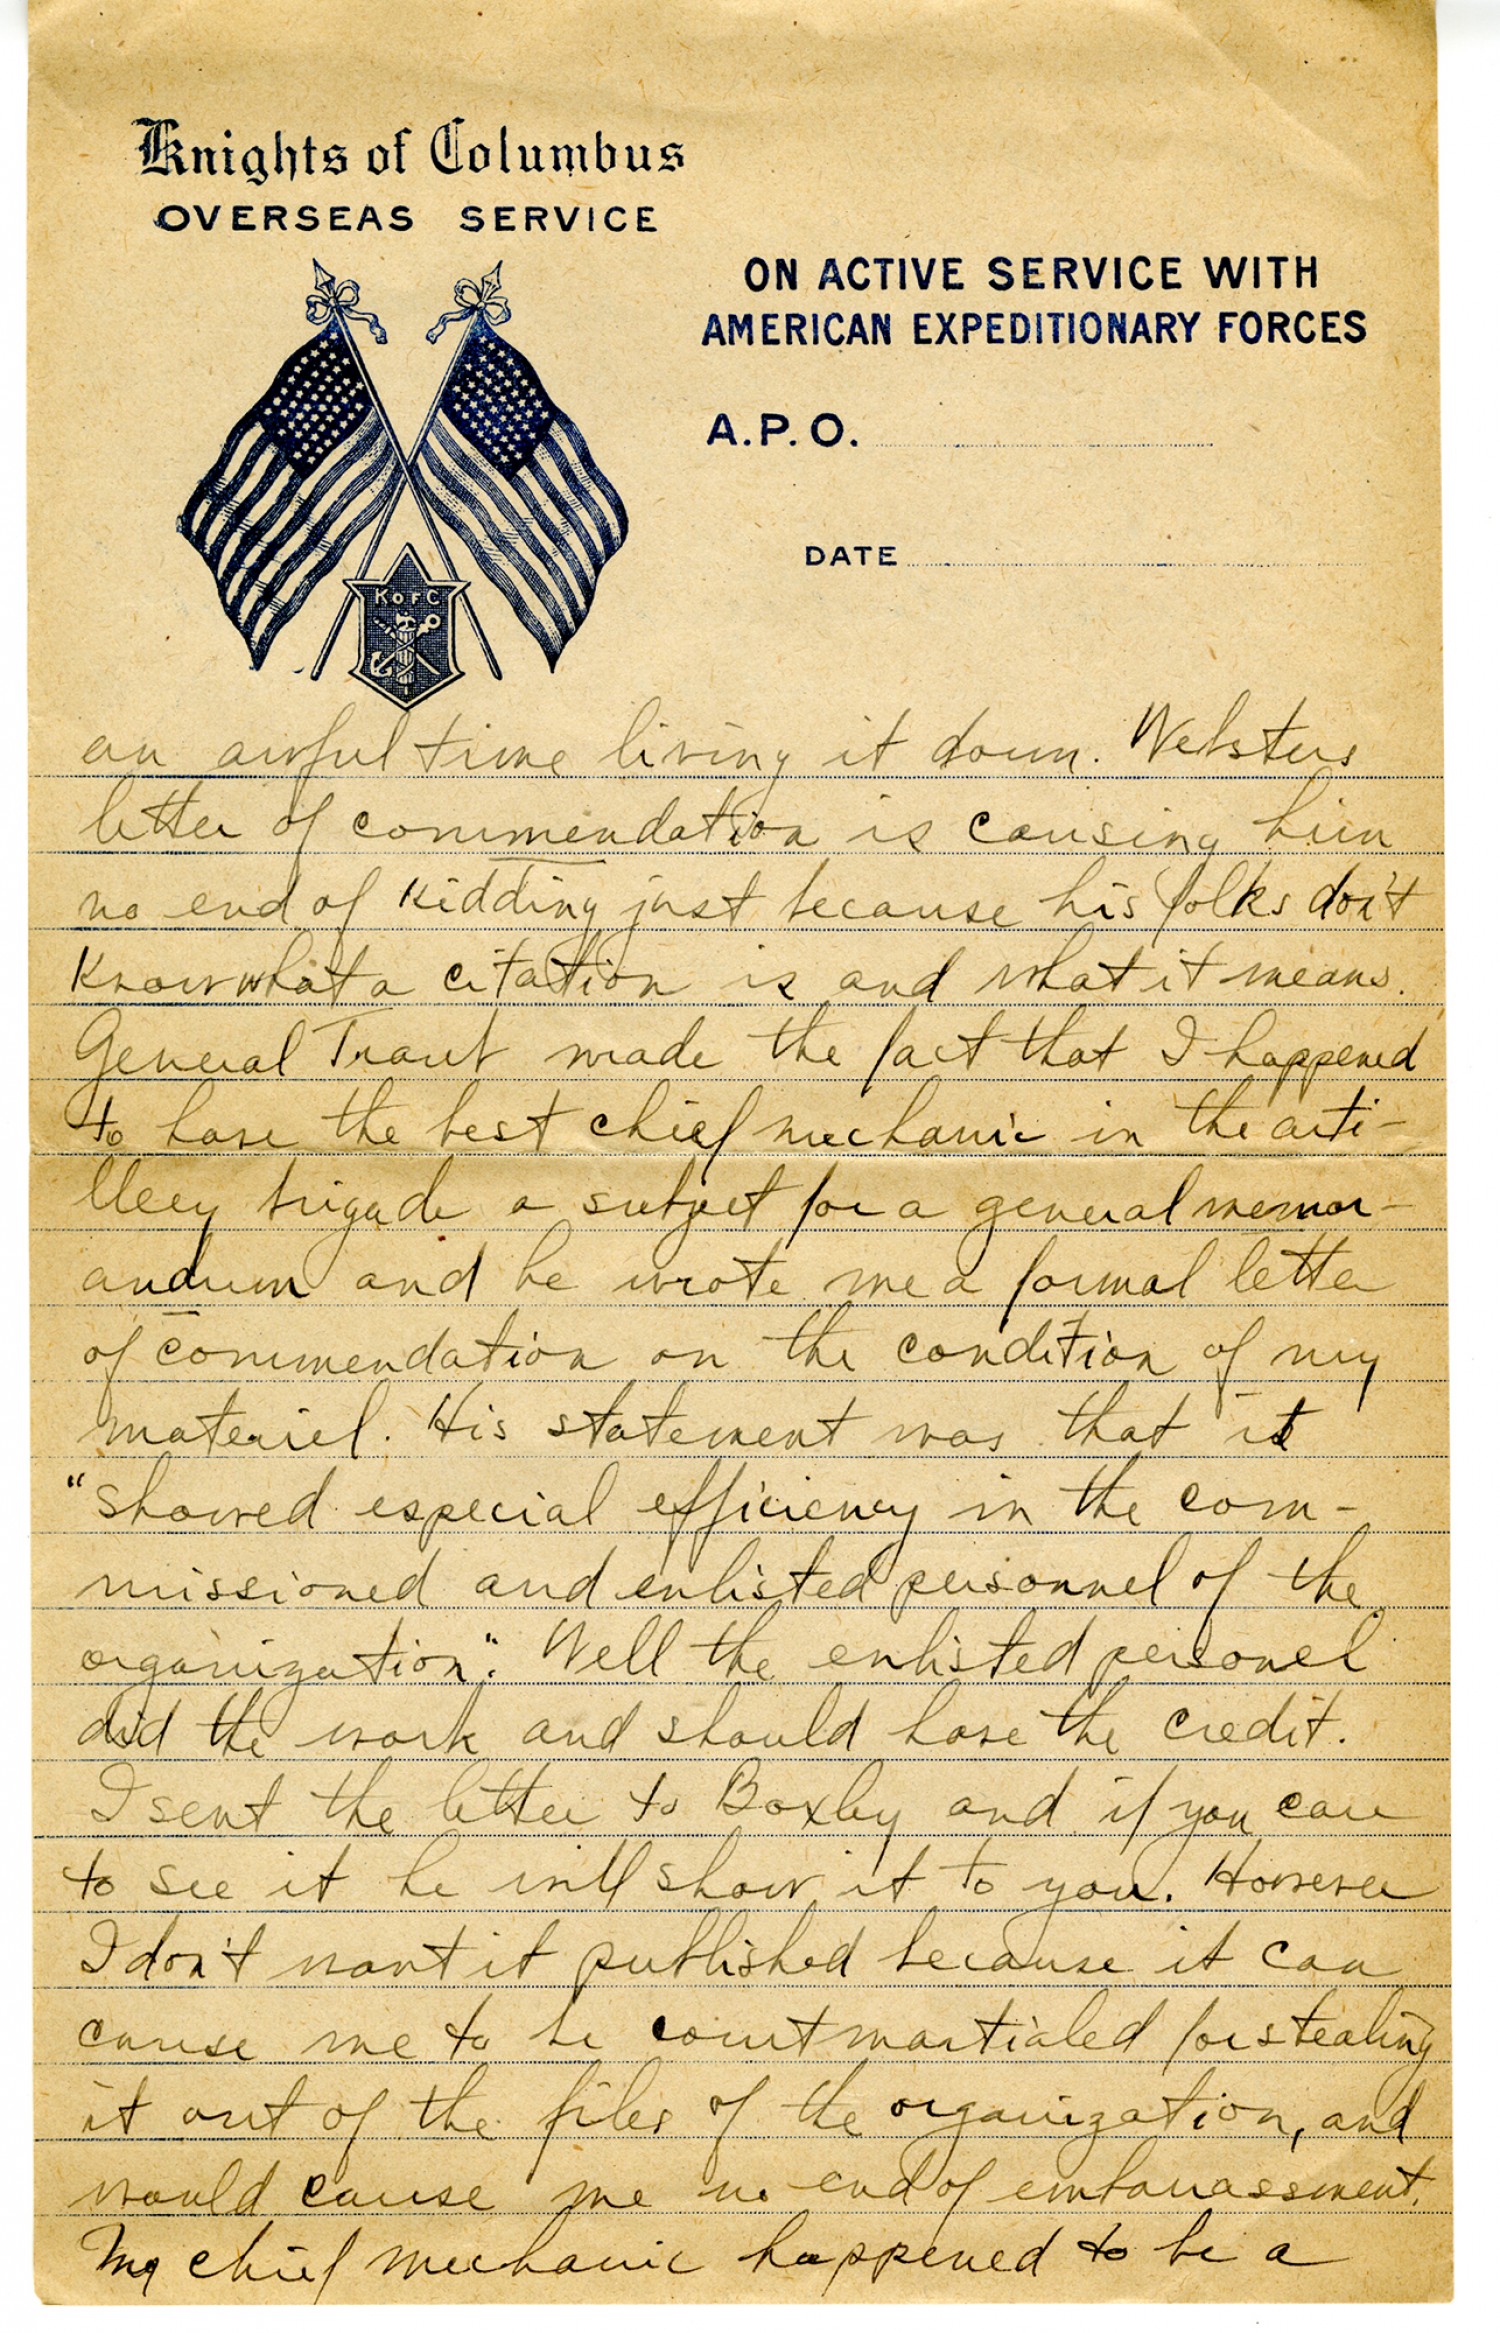 Knights of Columbus
OVERSEAS SERVICE
ON ACTIVE SERVICE WITH
AMERICAN EXPEDITIONARY FORCES
A.P.O.
DATE
K OF C
an awful time living it down. Websters
letter of commendation is causing him
no end of kidding just because his folks don't
know what a citation is and what it means.
General Traub made the fact that I happened
to have the best chief mechanic in the arti-
llery brigade a subject for a general memor-
andum and he wrote me a formal letter
of commendation on the condition of my
materiel. His statement was that it
"showed especial efficiency in the com-
missioned and enlisted personnel of the
organization". Well the enlisted personel
did the work and should have the credit.
I sent the letter to Boxley and if you care
to see it he will show it to you. However
I don't want it published because it can
cause me to be court martialed for stealing
it out of the files of the organization, and
would cause me no end of embarrassment.
My chief mechanic happened to be a